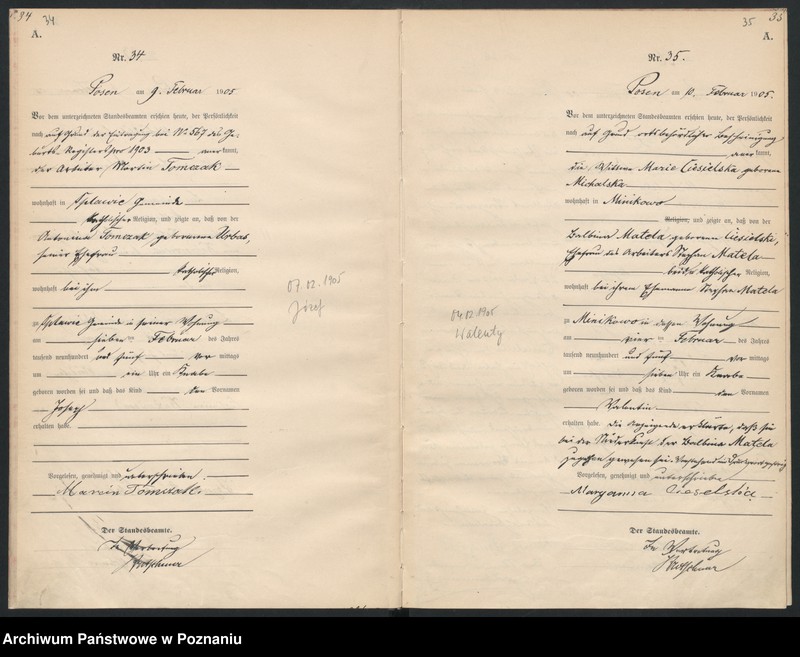 34
A.
Nr. 34
Posen am 9. Februar 1905
Vor dem unterzeichneten Standesbeamten erschien heute, der Persönlichkeit
nach auf Grund der Eintragung bei Nr. 567 des Ge-
burts-Registers pro 1903 anerkannt,
der Arbeiter Martin Tomczak
wohnhaft in Gemeinde
katholischer Religion, und zeigte an, daß von der
Antonina Tomczak geborenen Urbas,
seiner Ehefrau
katholischer Religion,
wohnhaft bei ihm
zu Gemeinde in seiner Wohnung
am sieben ten Februar des Jahres
tausend neunhundert und fünf Vor mittags
um ein Uhr ein Knabe
geboren worden sei und daß das Kind den Vornamen
Joseph
erhalten habe.
Vorgelesen, genehmigt und unterschrieben.
Marcin Tomczak
Der Standesbeamte.
In Vertretung
07.02.1905
Józef
35
33
A.
Nr. 35.
Posen am 10. Februar 1905.
Vor dem unterzeichneten Standesbeamten erschien heute, der Persönlichkeit
nach auf Grund ortsbehördlicher Bescheinigung
anerkannt,
die Wittwe Marie Ciesielska geborene
Michalska
wohnhaft in Minikowo
Religion, und zeigte an, daß von der
Balbina Matela geborenen Ciesielska,
Ehefrau des Arbeiters Stephan Matela
beide katholischer Religion,
wohnhaft bei ihrem Ehemann Stephan Matela
zu Minikowo in dessen Wohnung
am vier ten Februar des Jahres
tausend neunhundert und fünf Vor mittags
um sieben Uhr ein Knabe
geboren worden sei und daß das Kind den Vornamen
Valentin
erhalten habe. Die Anzeigende erklärte, daß sie
bei der Niederkunft der Balbina Matela
zugegen gewesen sei.
Vorgelesen, genehmigt und unterschrieben
Maryanna
Der Standesbeamte.
In Vertretung
04.02.1905
Walenty
Archiwum Państwowe w Poznaniu